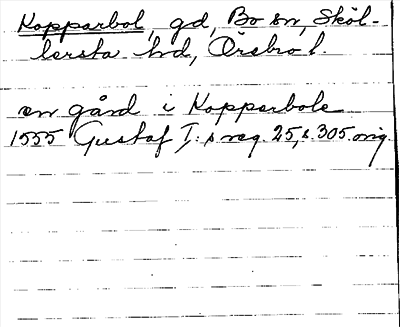 Kopparbol, gd, Bo sn, Sköl-
lersta hd, Örebro l.
en gård i Kopparbole
1555 Gustaf I:s reg. 25, s. 305. orig.